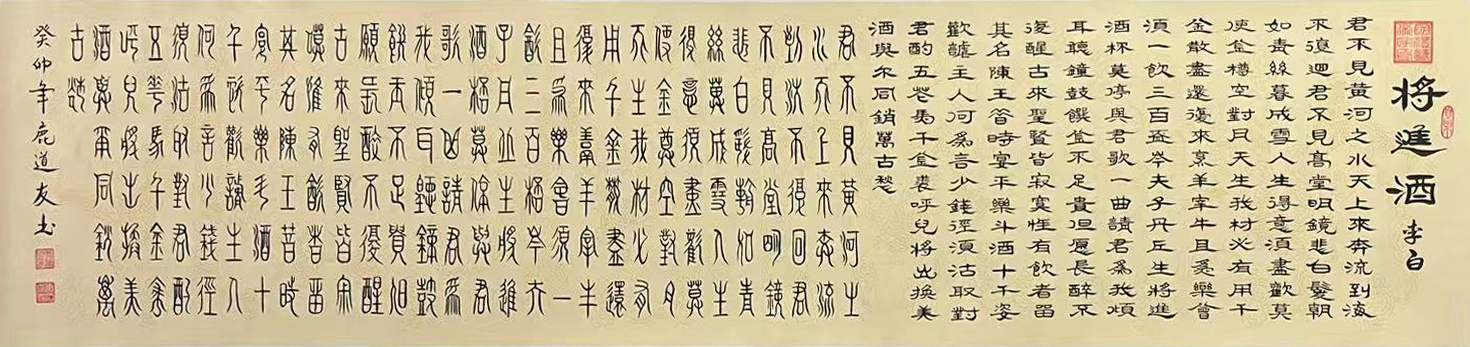 將進酒
李白
君不見黃河之水天上來奔流到海
不復迴君不見高堂明鏡悲白髮朝
如青絲暮成雪人生得意須盡歡莫
使金樽空對月天生我材必有用千
金散盡還復來烹羊宰牛且為樂會
須一飲三百盃岑夫子丹丘生將進
酒杯莫停與君歌一曲請君為我傾
耳聽鐘鼓饌金不足貴但愿長醉不
復醒古來聖賢皆寂寞惟有飲者留
其名陳王昔時宴平樂斗酒十千恣
歡謔主人何為言少錢徑須沽取對
君酌五花馬千金裘呼兒將出換美
酒與尔同銷萬古愁
君不見黃河之
水天上來奔流
到海不復回君
不見高堂明鏡
悲白髮朝如青
絲暮成雪人生
得意須盡歡莫
使金尊空對月
天生我材必有
用千金散盡還
復來烹羊宰牛
且為樂會須一
飲三百桮岑夫
子丹丘生將進
酒桮莫停與君
歌一曲請君為
我傾耳聽鐘鼓
饌玉不足貴但
願長醉不復醒
古來聖賢皆寂
寞惟有飲者留
其名陳王昔時
宴平樂斗酒十
千恣歡謔主人
何為言少錢徑
須沽取對君酌
五花馬千金裘
呼兒將出換美
酒與爾同銷萬
古愁
癸卯年鹿道友书